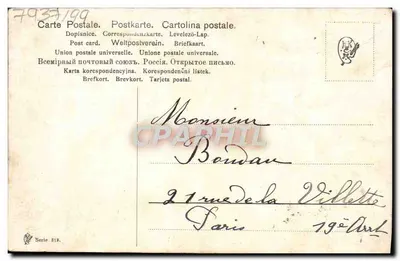 7937/99
Carte Postale. Postkarte. Cartolina postale.
Dopisnice. Correspondenzkarte. Levelező-Lap.
Post card. Weltpostverein. Briefkaart.
Union postale universelle. Unione postale universale.
Всемірный почтовый союзъ. Россія. Открытое письмо.
Karta korespondencyjna. Korespondenční lístek.
Brefkort. Brevkort. Tarjeta postal.
CPAPHIL
Monsieur
Boudau
21 rue de la Villette
Paris 19e Arrt
Serie 318.